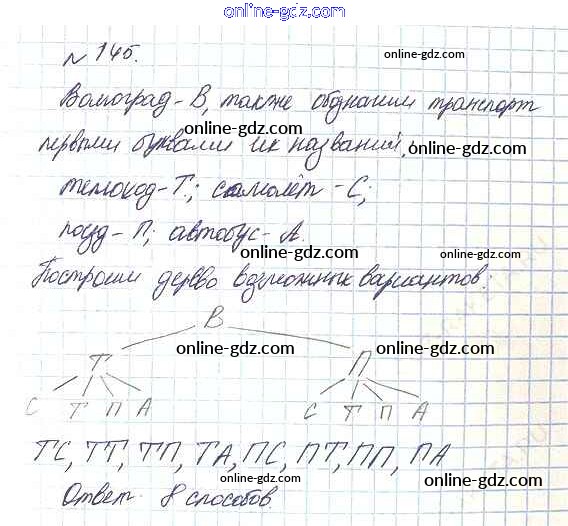 online-gdz.com
№ 145.
online-gdz.com
Волгоград - В, также обозначим транспорт
online-gdz.com
первыми буквами их названий,
online-gdz.com
теплоход - Т; самолёт - С;
online-gdz.com
поезд - П; автобус - А.
online-gdz.com
Построим дерево возможных вариантов:
online-gdz.com
В
Т П
online-gdz.com online-gdz.com
С Т П А С Т П А
online-gdz.com online-gdz.com
ТС, ТТ, ТП, ТА, ПС, ПТ, ПП, ПА
online-gdz.com
Ответ: 8 способов.
online-gdz.com